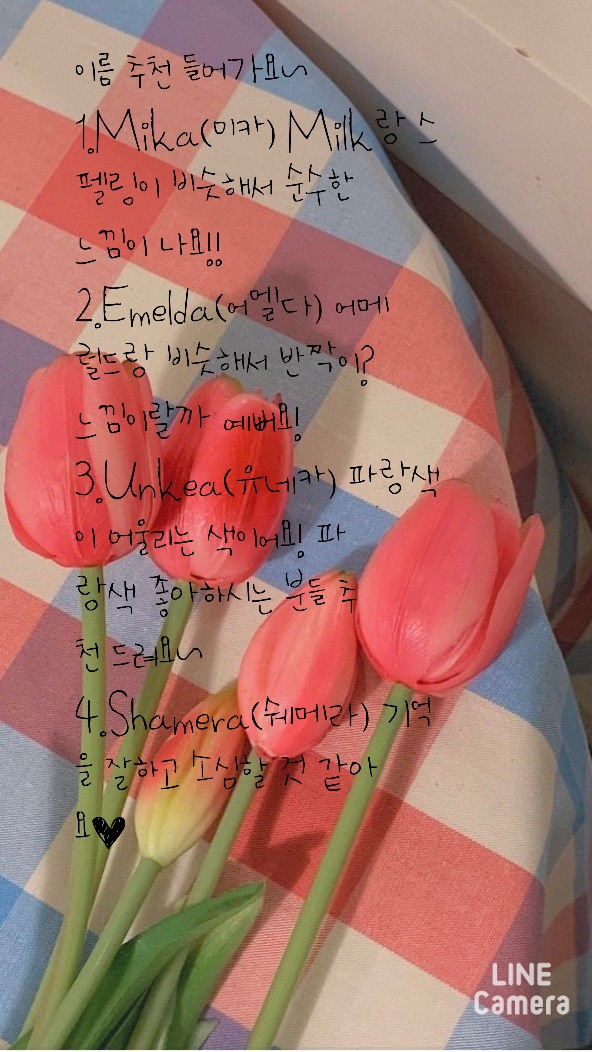 이름 추천 들어가요~
1.Mika(미카) Milk랑 스
펠링이 비슷해서 순수한
느낌이 나요!!
2.Emelda(에멜다) 에메
랄드랑 비슷해서 반짝이?
느낌이랄까 예뻐요!
3.Unkea(유네카) 파랑색
이 어울리는 색이에요! 파
랑색 좋아하시는 분들 추
천 드려요~
4.Shamera(쉐메라) 기억
을 잘하고 소심할 것 같아
요♥
LINE
Camera